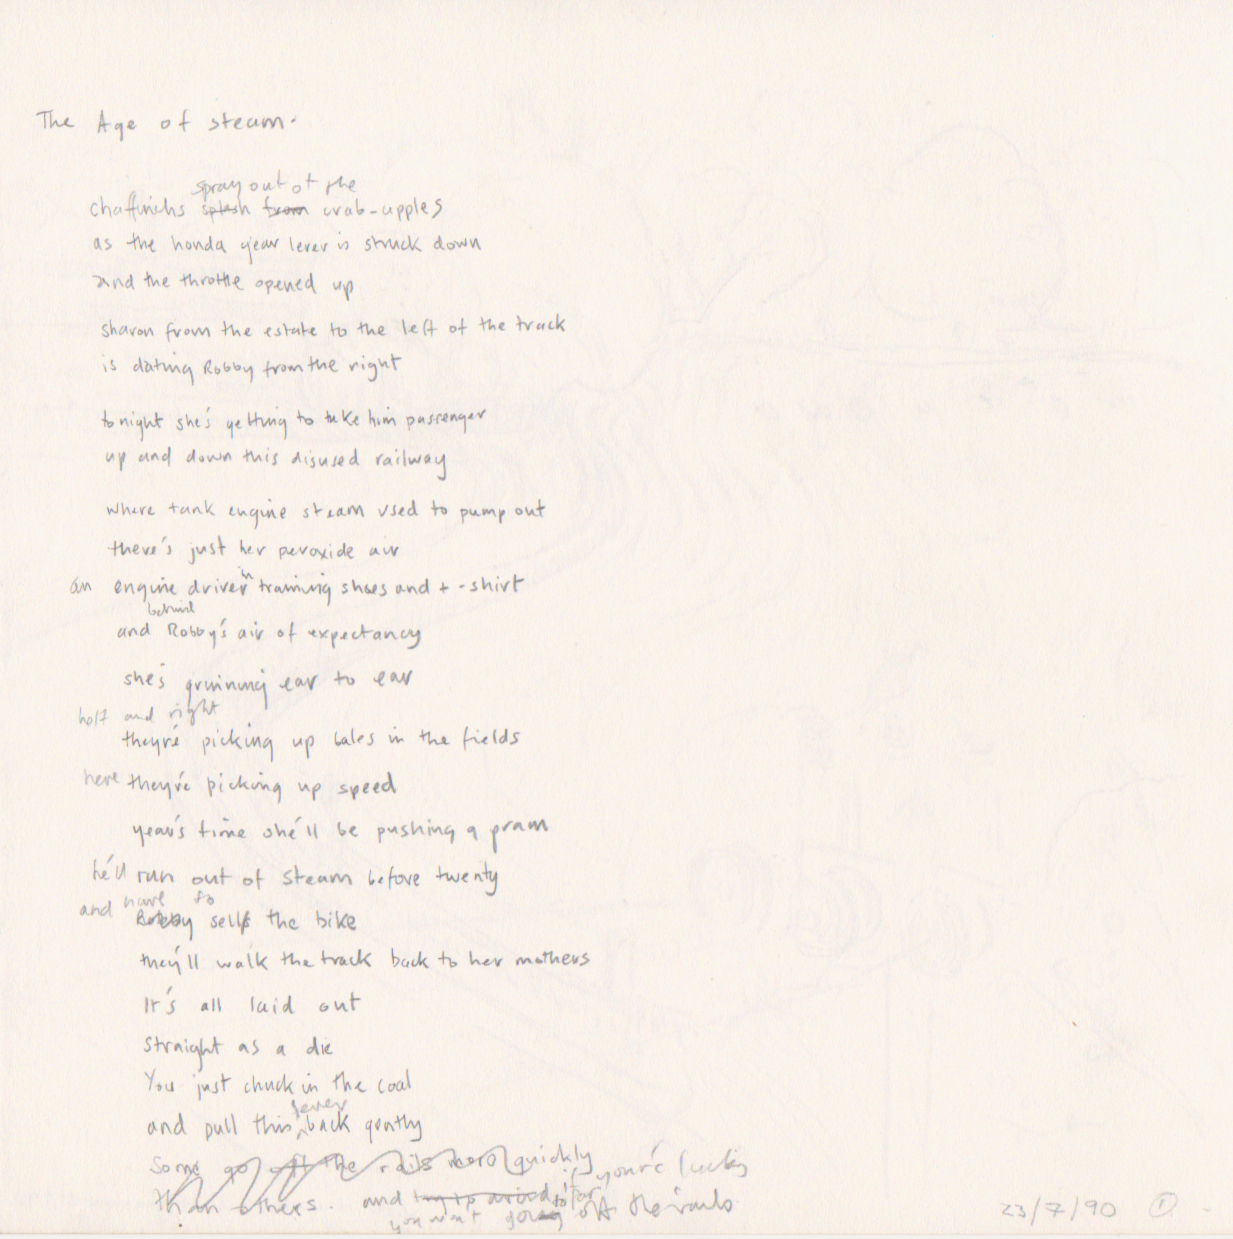 The Age of steam.
spray out of the
chaffinchs splash from crab-apples
as the honda gear lever is struck down
and the throttle opened up
sharon from the estate to the left of the track
is dating Robby from the right
tonight she's getting to take him passenger
up and down this disused railway
where tank engine steam used to pump out
there's just her peroxide air
an engine driver in training shoes and t-shirt
behind
and Robby's air of expectancy
she's grinning ear to ear
left and right
they're picking up bales in the fields
here they're picking up speed
year's time she'll be pushing a pram
he'll run out of steam before twenty
and have to
Robby sells the bike
they'll walk the track back to her mothers
It's all laid out
straight as a die
You just chuck in the coal
lever
and pull this back gently
Some go off the rails more quickly
if you're lucky
than others. and try to avoid
you won't going off the rails
23/7/90 1